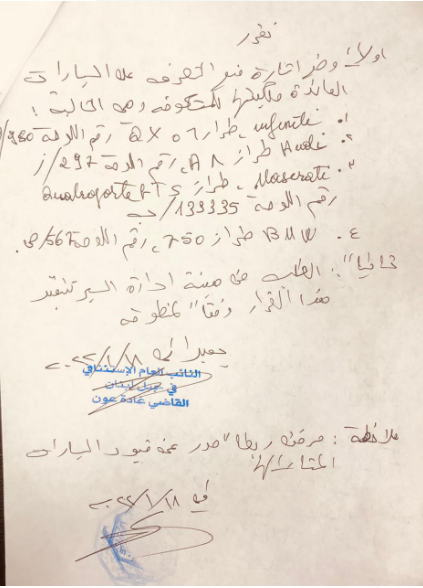 نقرر
اولاً: وضع اشارة منع التصرف على السيارات
العائدة ملكيتها للمشكو منه وهي التالية:
١. infiniti، طراز QX 56 رقم اللوحة
٢. Audi طراز A8، رقم اللوحة 297/ز
٣. Maserati، طراز Quatroporte GTS
رقم اللوحة 133335/ب
٤. BMW طراز 750، رقم اللوحة
ثانياً: الطلب من هيئة ادارة السير تنفيذ
هذا القرار وفقاً لمنطوقه
بعبدا في
النائب العام الإستئنافي
في جبل لبنان
القاضي غادة عون
ملاحظة: مرفق ربطاً صور عن قيود السيارات
المشار اليها
في ١٨/١/٢٢